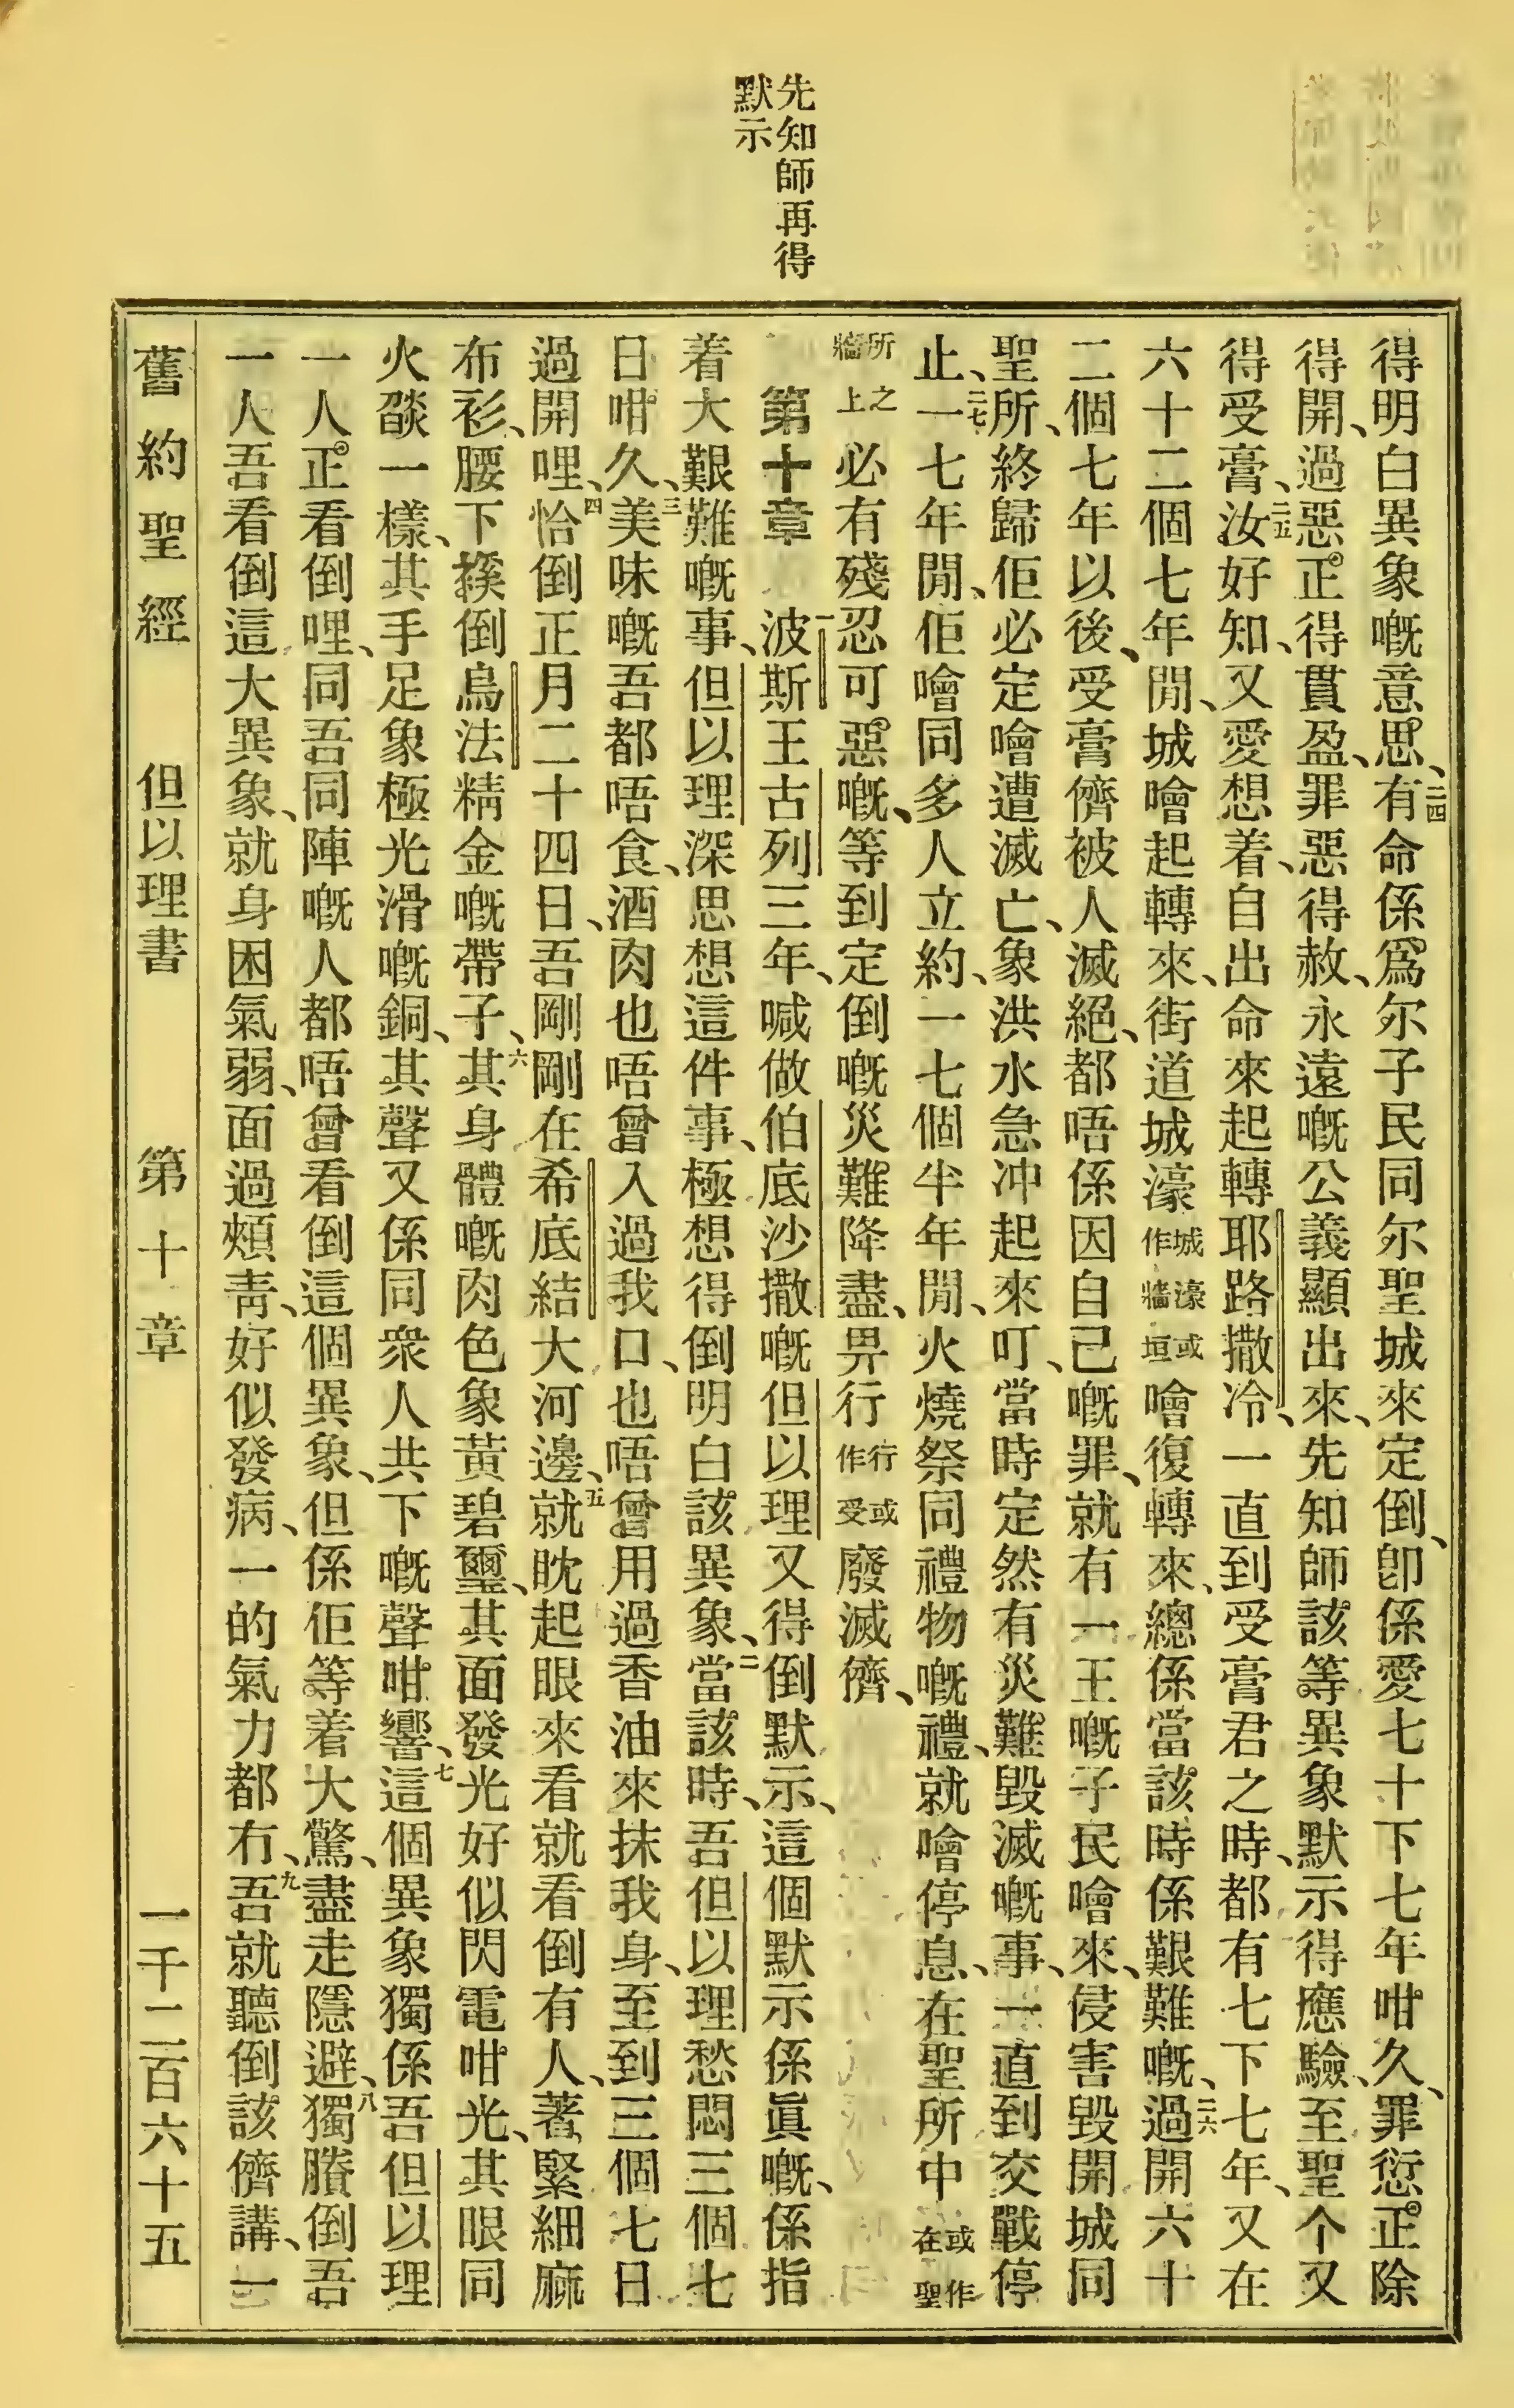 先知師再得
默示
得明白異象嘅意思、二四有命係爲尔子民同尔聖城來定倒、卽係愛七十下七年咁久、罪愆正除
得開、過惡正得貫盈、罪惡得赦、永遠嘅公義顯出來、先知師該等異象默示得應驗、至聖个又
得受膏、二五汝好知、又愛想着、自出命來起轉耶路撒冷、一直到受膏君之時、都有七下七年、又在
六十二個七年閒、城噲起轉來、街道城濠城濠或作牆垣噲復轉來、總係當該時係艱難嘅、二六過開六十
二個七年以後、受膏儕被人滅絕、都唔係因自己嘅罪、就有一王嘅子民噲來、侵害毀開城同
聖所、終歸佢必定噲遭滅亡、象洪水急冲起來叮、當時定然有災難毀滅嘅事、一直到交戰停
止、二七一七年閒、佢噲同多人立約、一七個半年閒、火燒祭同禮物嘅禮、就噲停息、在聖所中或作在聖
所之牆上必有殘忍可惡嘅、等到定倒嘅災難降盡、畀行行或作受廢滅儕、
第十章　一波斯王古列三年、喊做伯底沙撒嘅但以理又得倒默示、這個默示係眞嘅、係指
着大艱難嘅事、但以理深思想這件事、極想得倒明白該異象、二當該時、吾但以理愁悶三個七
日咁久、三美味嘅吾都唔食、酒肉也唔曾入過我口、也唔曾用過香油來抹我身、至到三個七日
過開哩、四恰倒正月二十四日、吾剛剛在希底結大河邊、五就眈起眼來看就看倒有人、著緊細麻
布衫、腰下𢹂倒烏法精金嘅帶子、六其身體嘅肉色象黃碧璽、其面發光好似閃電咁光、其眼同
火燄一樣、其手足象極光滑嘅銅、其聲又係同衆人共下嘅聲咁響、七這個異象獨係吾但以理
一人正看倒哩、同吾同陣嘅人都唔曾看倒這個異象、但係佢等着大驚、盡走隱避、八獨賸倒吾
一人吾看倒這大異象、就身困氣弱、面過頰靑、好似發病、一的氣力都冇、九吾就聽倒該儕講、一
舊約聖經　但以理書　第十章　一千二百六十五